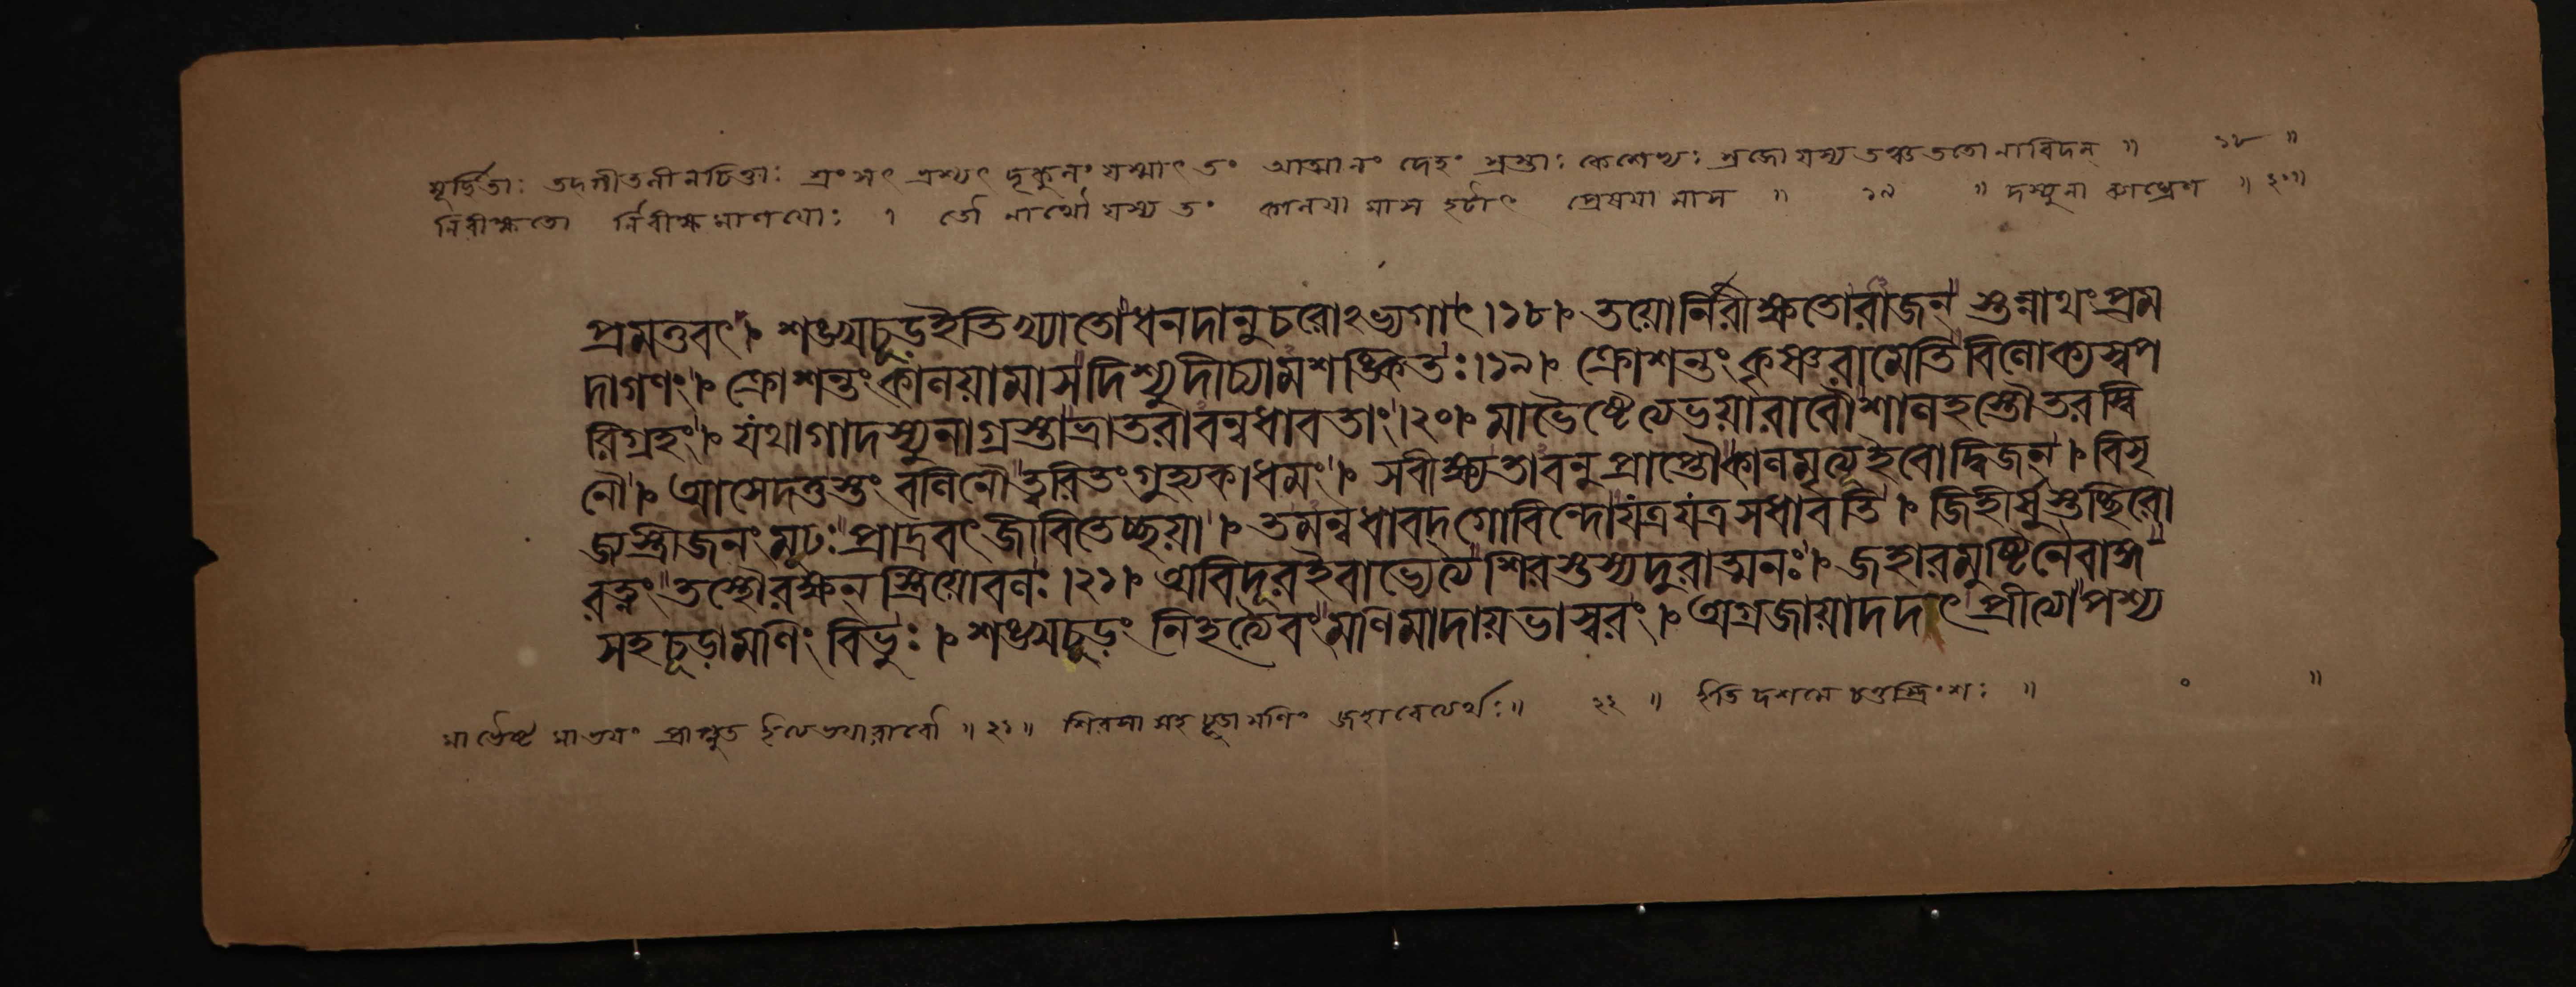 মূর্চ্ছিতাঃ তদ্গীতলীনচিত্তাঃ স্রংসৎ ভ্রশ্যৎ দুকূলং যস্মাৎ তং আত্মানং দেহং স্রস্তাঃ কেশেভ্যঃ স্রজো যস্য তঞ্চ ততো নাবিদন্ ॥ ১৮ ॥
নিরীক্ষতো র্নিরীক্ষমাণয়োঃ । তৌ নাথৌ যস্য তং কালয়ামাস হঠাৎ প্রেষয়ামাস ॥ ১৯ ॥ দস্যুনা ব্যাঘ্রেণ ॥ ২০ ॥
প্রমত্তবৎ । শঙ্খচূড়ইতিখ্যাতোধনদানুচরোঽভ্যগাৎ ।১৮। তয়োর্নিরীক্ষতোরাজন্ স্তন্নাথংপ্রম
দাগণং । ক্রোশন্তংকালয়ামাসদিশ্যুদীচ্যামশঙ্কিতঃ ।১৯। ক্রোশন্তং কৃষ্ণরামেতিবিলোক্যস্বপ
রিগ্রহং । যথাগাদস্যুনাগ্রস্তাভ্রাতরাবন্বধাবতাং ।২০। মাভৈষ্টেত্যভয়ারাবৌশালহস্তৌতরস্বি
নৌ । আসেদতুস্তং বলিনৌত্বরিতংগুহ্যকাধমং । সবীক্ষ্যতাবনুপ্রাপ্তৌকালমৃত্যূইবোদ্বিজন্ । বিসৃ
জ্যস্ত্রীজনংমূঢঃপ্রাদ্রবৎজীবিতেচ্ছয়া । তমন্বধাবদ্গোবিন্দোযত্রযত্রসধাবতি । জিহীর্ষুস্তচ্ছিরো
রত্নং তস্থৌরক্ষন্ স্ত্রিয়োবলঃ ।২১। অবিদূরইবাভ্যেত্যশিরস্তস্যদুরাত্মনঃ । জহারমুষ্টিনৈবাঙ্গ
সহচূড়ামণিং বিভুঃ । শঙ্খচূড়ং নিহত্যৈবংমণিমাদায়ভাস্বরং । অগ্রজায়াদদাৎপ্রীত্যাপশ্য
মাভৈষ্ট মাভয়ং প্রাপ্নুত ইত্যেভয়ারাবৌ ॥ ২১ ॥ শিরসা সহ চূড়ামণিং জহারেত্যর্থঃ ॥ ২২ ॥ ইতি দশমে চতুস্ত্রিংশঃ ॥ ० ॥